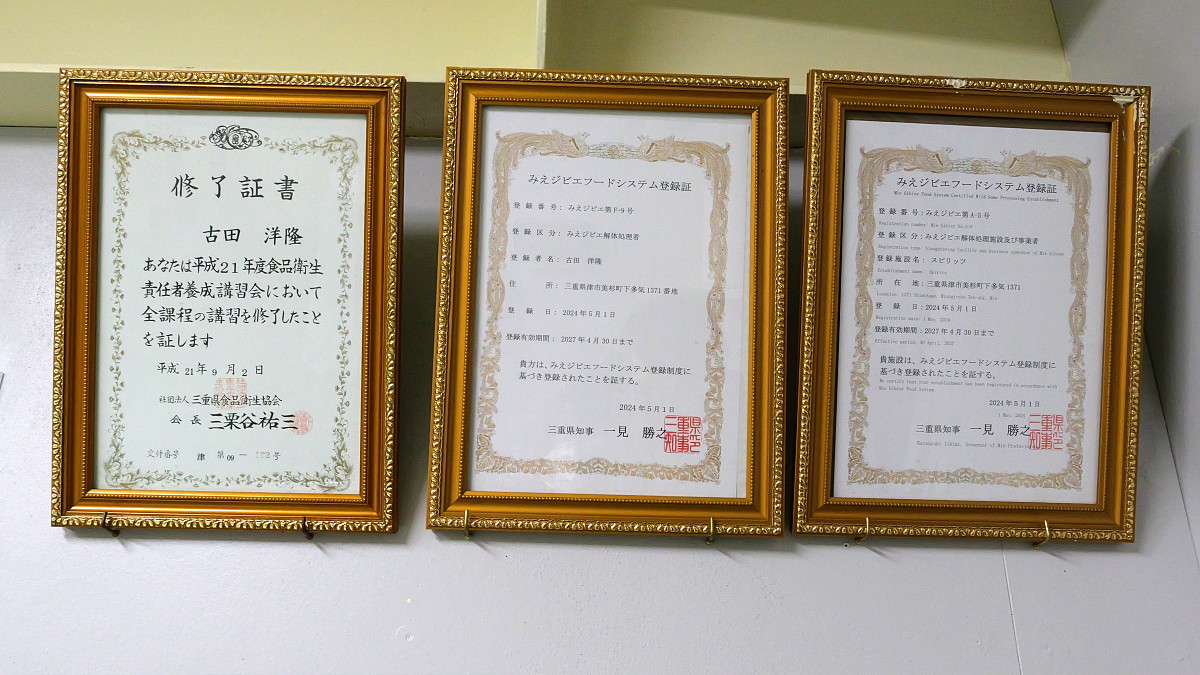 修了証書
古田 洋隆
あなたは平成21年度食品衛生
責任者養成講習会において
全課程の講習を修了したこと
を証します
平成 21年 9月 2日
社団法人 三重県食品衛生協会
会長 三栗谷祐三
交付番号 津 第09－ 号
みえジビエフードシステム登録証
登録番号： みえジビエ第F-9号
登録区分： みえジビエ解体処理者
登録者名： 古田 洋隆
住所： 三重県津市美杉町下多気1371番地
登録日： 2024年5月1日
登録有効期間： 2027年4月30日まで
貴方は、みえジビエフードシステム登録制度に
基づき登録されたことを証する。
2024年5月1日
三重県知事 一見 勝之
三重県知事印
みえジビエフードシステム登録証
Mie Gibier Food System Certified Wild Game Processing Establishment
登録番号：みえジビエ第A-5号
Registration number: Mie Gibier No.A-5
登録区分：みえジビエ解体処理施設及び事業者
Registration type: Slaughtering facility and business operator of Mie Gibier
登録施設名： スピリッツ
Establishment name: Spirits
所在地：三重県津市美杉町下多気1371
Location: 1371 Shimotage, Misugi-cho Tsu-shi, Mie
登録日：2024年5月1日
Registration date: 1 May, 2024
登録有効期間：2027年4月30日まで
Effective period: 30 April, 2027
貴施設は、みえジビエフードシステム登録制度に
基づき登録されたことを証する。
We certify that your establishment has been registered in accordance with
Mie Gibier Food System
2024年5月1日
1 May, 2024
三重県知事 一見 勝之
Katsuyuki Ichimi, Governor of Mie Prefecture
三重県知事印